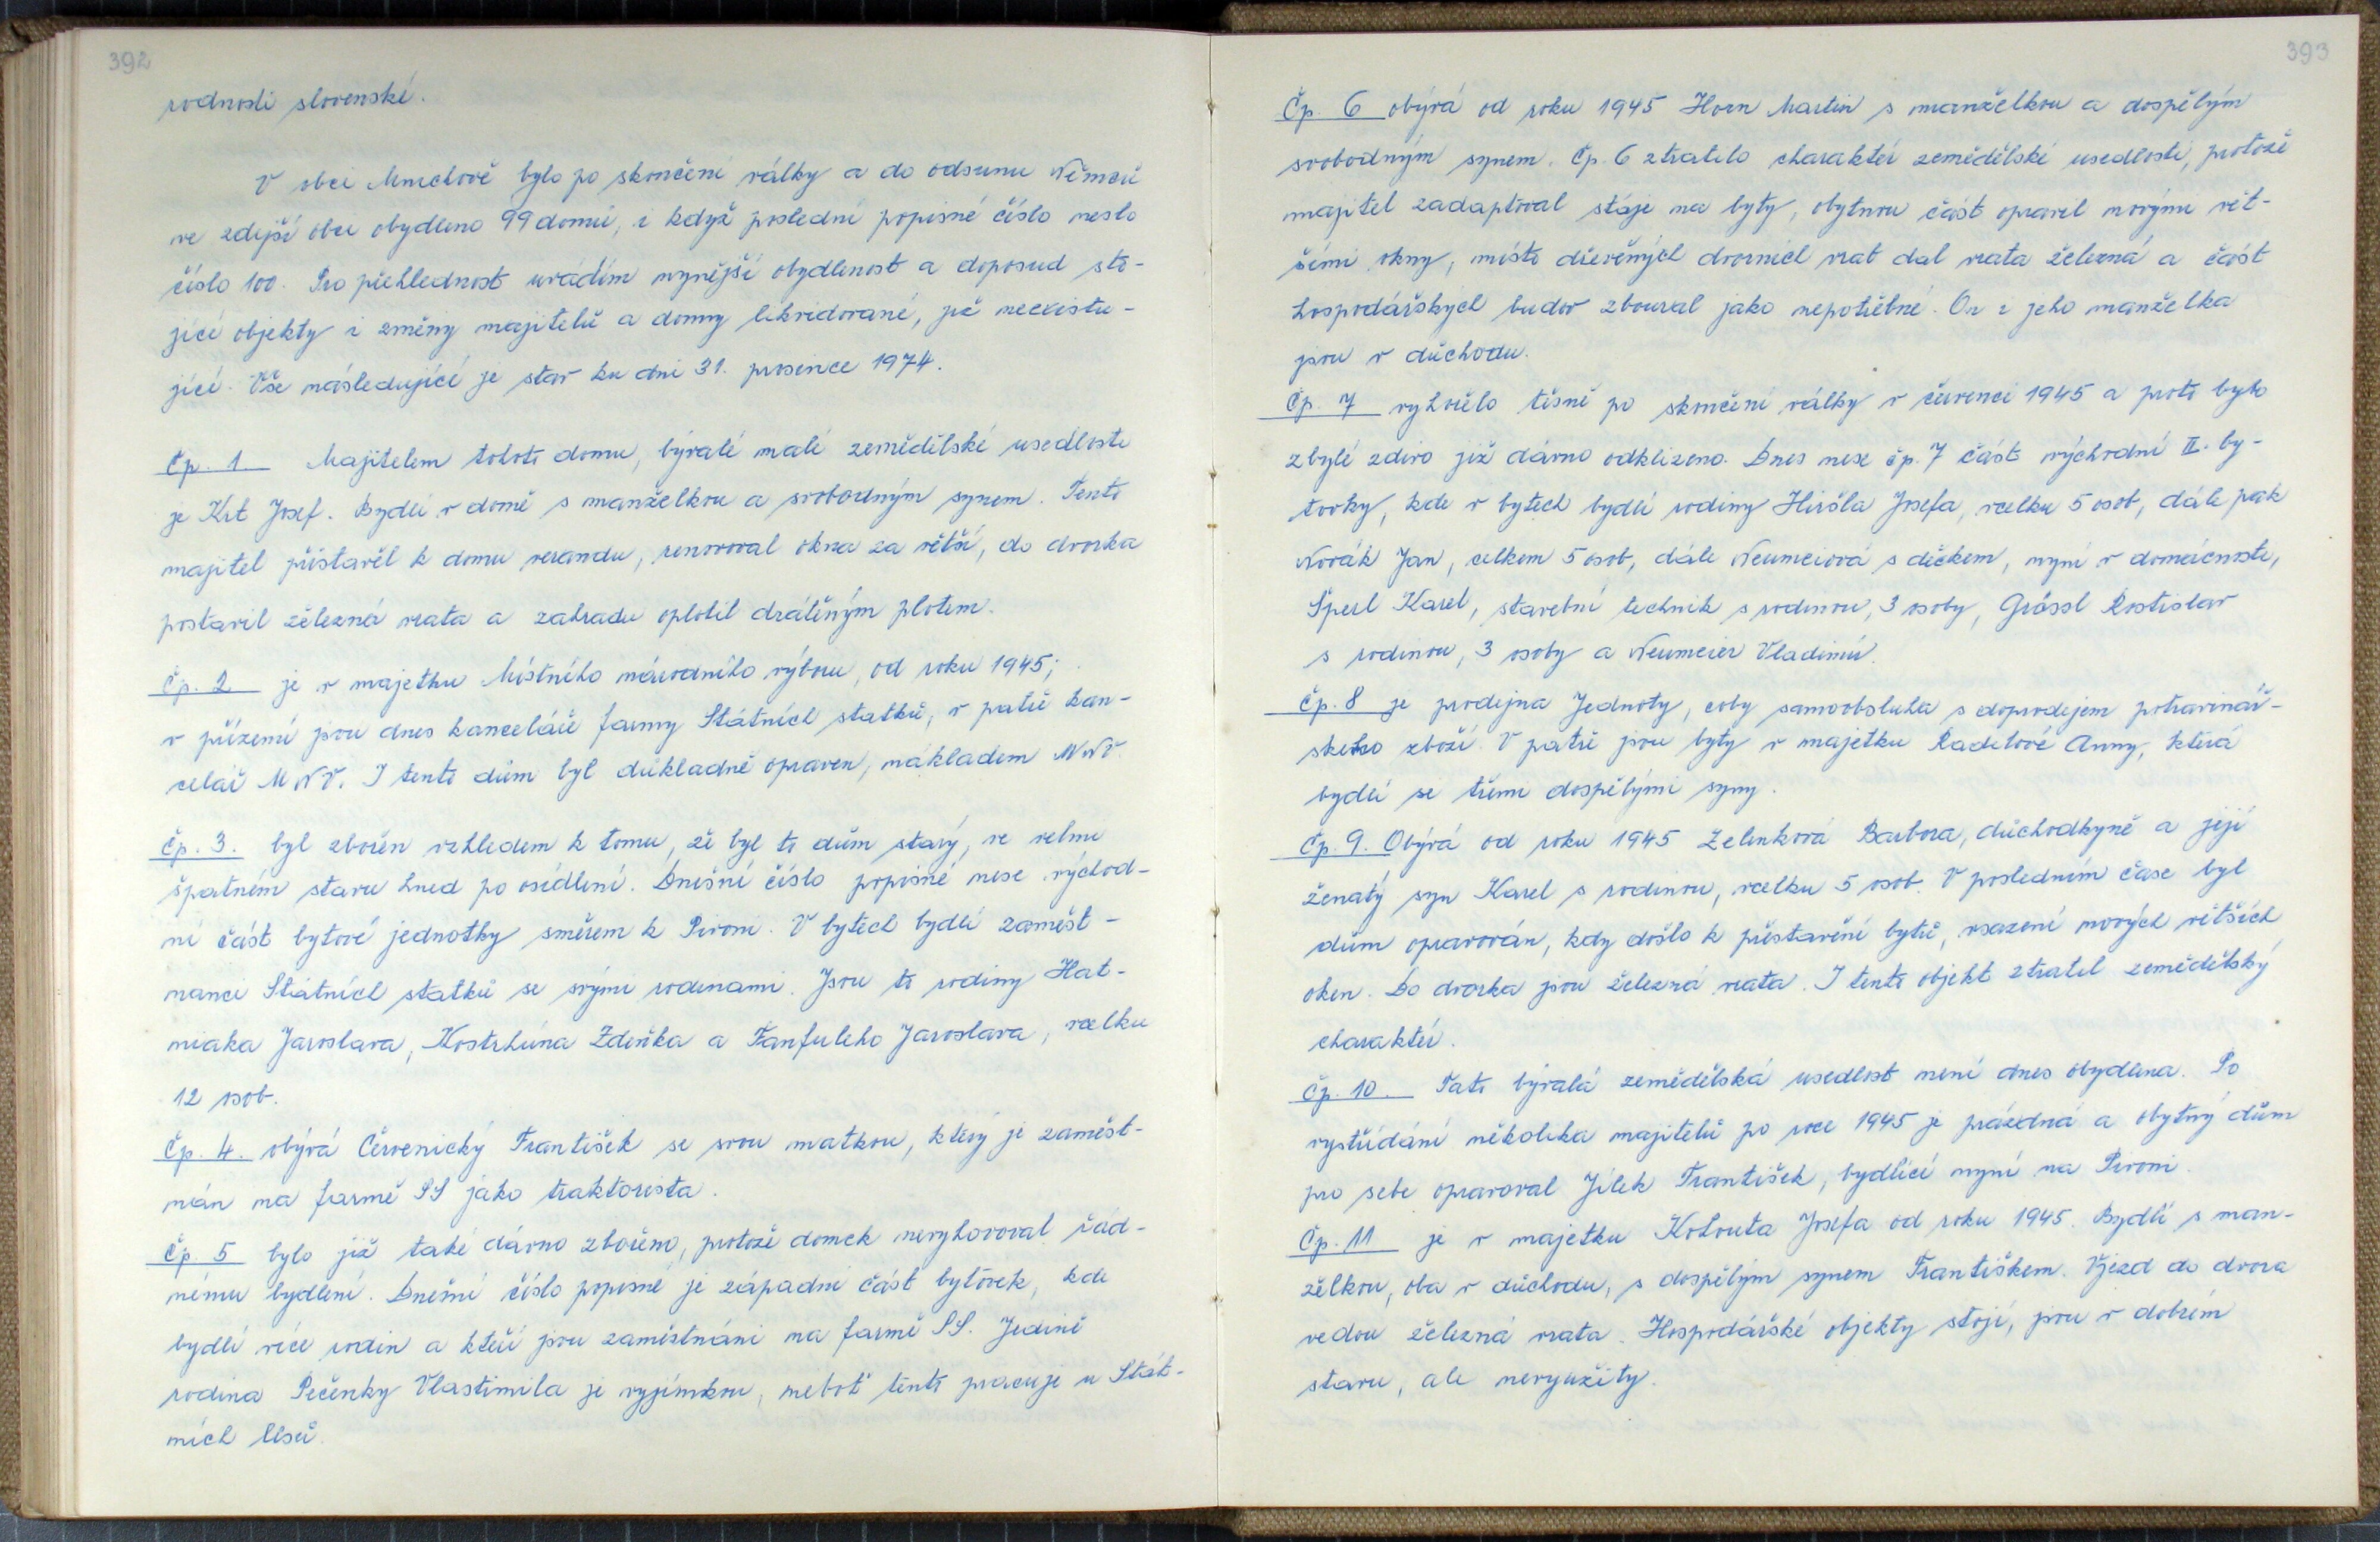 392
rodnosti slovenské.
V obci Mnichově bylo po skončení války a do odsunu Němců
ve zdejší obci obydleno 99 domů, i když poslední popisné číslo neslo
číslo 100. Pro přehlednost uvádím nynější obydlenost a doposud sto-
jící objekty i změny majitelů a domy likvidované, již neexistu-
jící. Vše následující je stav ku dni 31. prosince 1974.
Čp. 1. Majitelem tohoto domu, bývalé malé zemědělské usedlosti
je Krt Josef. Bydlí v domě s manželkou a svobodným synem. Tento
majitel přistavěl k domu verandu, renovoval okna za větší, do dvorka
postavil železná vrata a zahradu oplotil drátěným plotem.
Čp. 2 je v majetku Místního národního výboru, od roku 1945;
v přízemí jsou dnes kanceláře farmy Státních statků, v patře kan-
celář MNV. I tento dům byl důkladně opraven, nákladem MNV.
Čp. 3. byl zbořen vzhledem k tomu, že byl to dům starý, ve velmi
špatném stavu hned po osídlení. Dnešní číslo popisné nese východ-
ní část bytové jednotky směrem k Pívoni. V bytech bydlí zaměst-
nanci Státních statků se svými rodinami. Jsou to rodiny Hat-
niaka Jaroslava, Kostrhúna Zdeňka a Fanfuleho Jaroslava, vcelku
12 osob.
Čp. 4. obývá Červenický František se svou matkou, který je zaměst-
nán na farmě SS jako traktorista.
Čp. 5 bylo již také dávno zbořeno, protože domek nevyhovoval řád-
nému bydlení. Dnešní číslo popisné je západní část bytovek, kde
bydlí více rodin a kteří jsou zaměstnáni na farmě SS. Jedině
rodina Pečenky Vlastimila je vyjímkou, neboť tento pracuje u Stát-
ních lesů.
393
Čp. 6 obývá od roku 1945 Horn Martin s manželkou a dospělým
svobodným synem. Čp. 6 ztratilo charaktér zemědělské usedlosti, protože
majitel zadaptoval stáje na byty, obytnou část opravil novými vět-
šími okny, místo dřevěných dvorních vrat dal vrata železná a část
hospodářských budov zboural jako nepotřebné. On i jeho manželka
jsou v důchodu.
Čp. 7 vyhořelo těsně po skončení války v červenci 1945 a proto bylo
zbylé zdivo již dávno odklizeno. Dnes nese čp. 7 část východní II. by-
tovky, kde v bytech bydlí rodiny Hiršla Josefa, vcelku 5 osob, dále pak
Novák Jan, celkem 5 osob, dále Neumeiová s děckem, nyní v domácnosti,
Šperl Karel, stavební technik s rodinou, 3 osoby, Grössl Rostislav
s rodinou, 3 osoby a Neumeier Vladimír.
Čp. 8 je prodejna Jednoty, coby samoobsluha s doprodejem potravinář-
ského zboží. V patře jsou byty v majetku Radilové Anny, která
bydlí se třemi dospělými syny.
Čp. 9. Obývá od roku 1945 Zelinková Barbora, důchodkyně a její
ženatý syn Karel s rodinou, vcelku 5 osob. V posledním čase byl
dům opravován, kdy došlo k přistavění bytů, vsazení nových větších
oken. Do dvorka jsou železná vrata. I tento objekt ztratil zemědělský
charaktér.
Čp. 10. Tato bývalá zemědělská usedlost není dnes obydlena. Po
vystřídání několika majitelů po roce 1945 je prázdná a obytný dům
pro sebe opravoval Jílek František, bydlící nyní na Pívoni.
Čp. 11 je v majetku Kohouta Josefa od roku 1945. Bydlí s man-
želkou, oba v důchodu, s dospělým synem Františkem. Vjezd do dvora
vedou železná vrata. Hospodářské objekty stojí, jsou v dobrém
stavu, ale nevyužity.